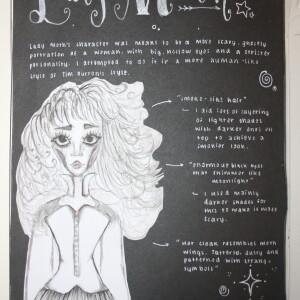 Lady Moth
Lady Moth's character was meant to be a more scary, ghostly
of a woman, with big, hollow eyes and a
personality. I attempted to do it in a more human-like
style of Tim Burton's style.
"smoke-like hair"
I did lots of layering
of lighter shades
with darker ones on
top to achieve a
smokier look.
"enormous black eyes
that shimmer like
moonlight"
I used mainly
darker shades for
this to make it more
scary.
"Her cloak resembles moth
wings, tattered, dusty and
patterned with strange
symbols"